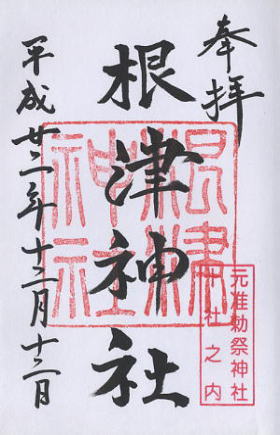 奉拝
根津神社
平成廿二年十二月十二日
根津神社
元准勅祭神社
十社之内